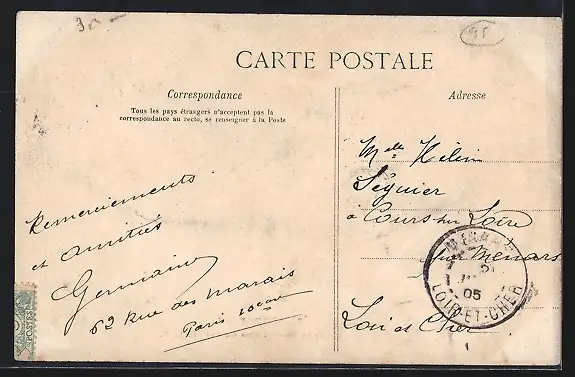 30
95
CARTE POSTALE
Correspondance
Tous les pays étrangers n'acceptent pas la
correspondance au recto, se renseigner à la Poste
Remerciements
et amitiés
Germaine
62 Rue des marais
Paris 10e
Adresse
Melle Hélèn
Séguier
à Cours sur Loire
par Menars
Loir et Cher
05
LOIR-ET-CHER
POSTES